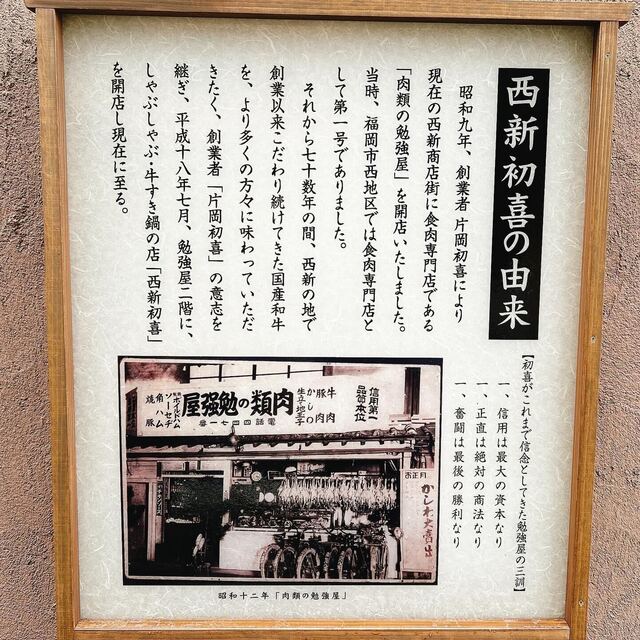 西新初喜の由来
昭和九年、創業者 片岡初喜により
現在の西新商店街に食肉専門店である
「肉類の勉強屋」を開店いたしました。
当時、福岡市西地区では食肉専門店と
して第一号でありました。
それから七十数年の間、西新の地で
創業以来こだわり続けてきた国産和牛
を、より多くの方々に味わっていただ
きたく、創業者「片岡初喜」の意志を
継ぎ、平成十八年七月、勉強屋二階に、
しゃぶしゃぶ・牛すき鍋の店「西新初喜」
を開店し現在に至る。
【初喜がこれまで信念としてきた勉強屋の三訓】
一、信用は最大の資本なり
一、正直は絶対の商法なり
一、奮闘は最後の勝利なり
信用第一
品質本位
牛肉
豚肉
かしわ
生立地玉子
屋強勉の類肉
電話四四七一番
ボイルドハム
ソーセーヂ
角ハム
焼豚
お正月
かしわ大売出
昭和十二年「肉類の勉強屋」